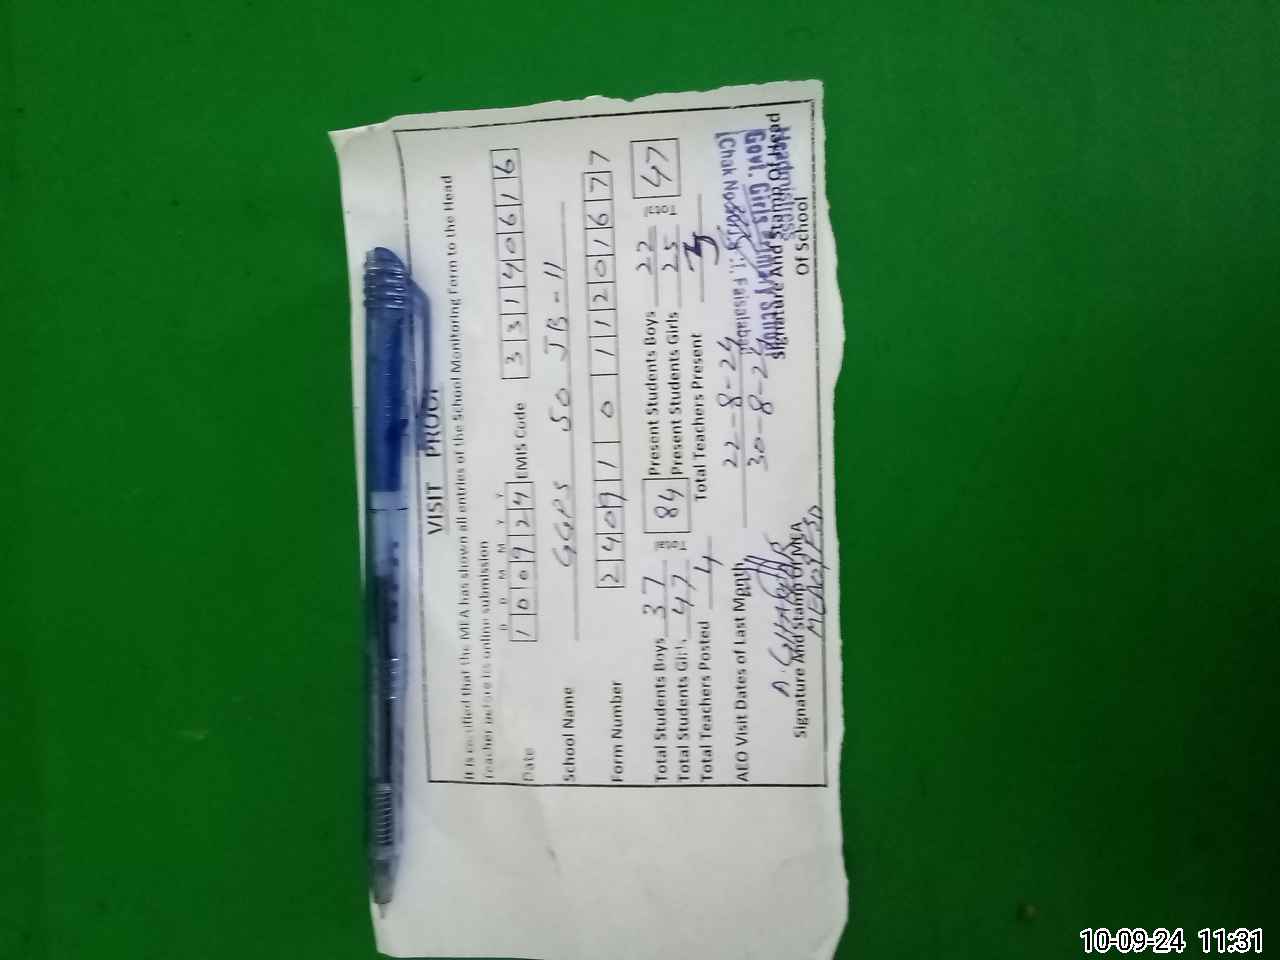 VISIT PROOF
It is certified that the MEA has shown all entries of the School Monitoring Form to the Head
Teacher before its online submission
D D M M Y Y
Date 100924 EMIS Code 33140616
School Name GGPS 50 JB-11
Form Number 240911011201677
Total Students Boys 37 Total 84 Present Students Boys 22 Total 47
Total Students Girls 47 Present Students Girls 25
Total Teachers Posted 4 Total Teachers Present 3
AEO Visit Dates of Last Month 22-8-24
30-8-24
A. GHAFFAR
Signature And Stamp Of MEA
Signature And Stamp Of Head
Of School
Headmistress
Govt. Girls Primary School
Faisalabad
10-09-24 11:31